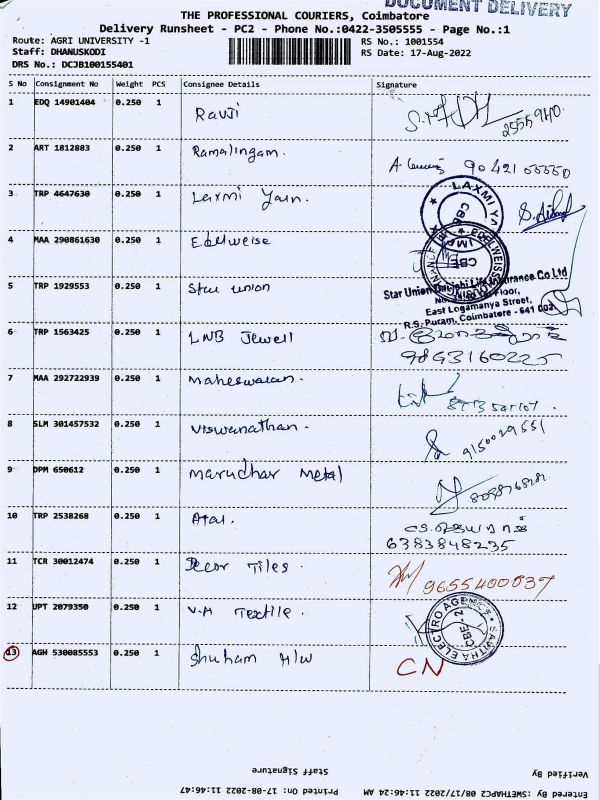 DOCUMENT DELIVERY
THE PROFESSIONAL COURIERS, Coimbatore
Delivery Runsheet - PC2 - Phone No.:0422-3505555 - Page No.:1
Route: AGRI UNIVERSITY -1 RS No.: 1001554
Staff: DHANUSKODI RS Date: 17-Aug-2022
DRS No.: DCJB100155401
S No Consignment No Weight PCS Consignee Details Signature
1 EDQ 14901404 0.250 1 Ravji
2 ART 1812883 0.250 1 Ramalingam.
3 TRP 4647630 0.250 1 Laxmi Yarn. LAXMI YA CBE
4 MAA 290861630 0.250 1 Edelweise EDELWEISS CBE
5 TRP 1929553 0.250 1 Star union
Star Union Life Insurance Co Ltd
Floor,
East Logamanya Street,
R.S. Puram, Coimbatore - 641 002
6 TRP 1563425 0.250 1 LNB Jewell
9843160225
7 MAA 292722939 0.250 1 maheswaran.
8 SLM 301457532 0.250 1 viswanathan. 9150029551
9 DPM 650612 0.250 1 marudhar metal
10 TRP 2538268 0.250 1
6383848235
11 TCR 30012474 0.250 1 Decor Tiles. 9655400037
12 UPT 2079350 0.250 1 V.A Textile. SAVITHA ELECTRO AGENCY CBE-2
13 AGH 530085553 0.250 1 Shuham H/W CN
Staff Signature Verified By
Printed On: 17-08-2022 11:46:47 Entered By :SWETHAPC2 08/17/2022 11:46:24 AM